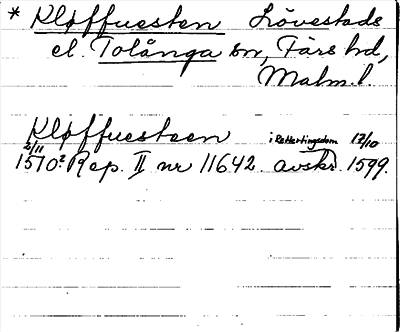 * Kløffuesten Lövestads
el. Tolånga sn, Färs hd,
Malm. l.
Kløffuesteen i Rettertingsdom 17/10
2/11 1570? Rep. II nr 11642. avskr. 1599.